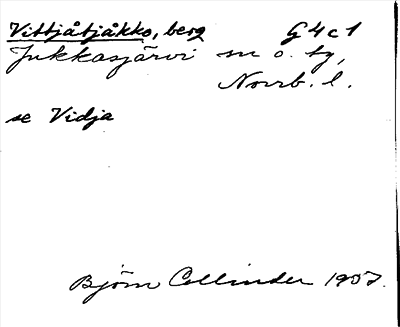 Vittjåtjåkko, berg G4c1
Jukkasjärvi sn o. tg,
Norrb. l.
se Vidja
Björn Collinder 1957.